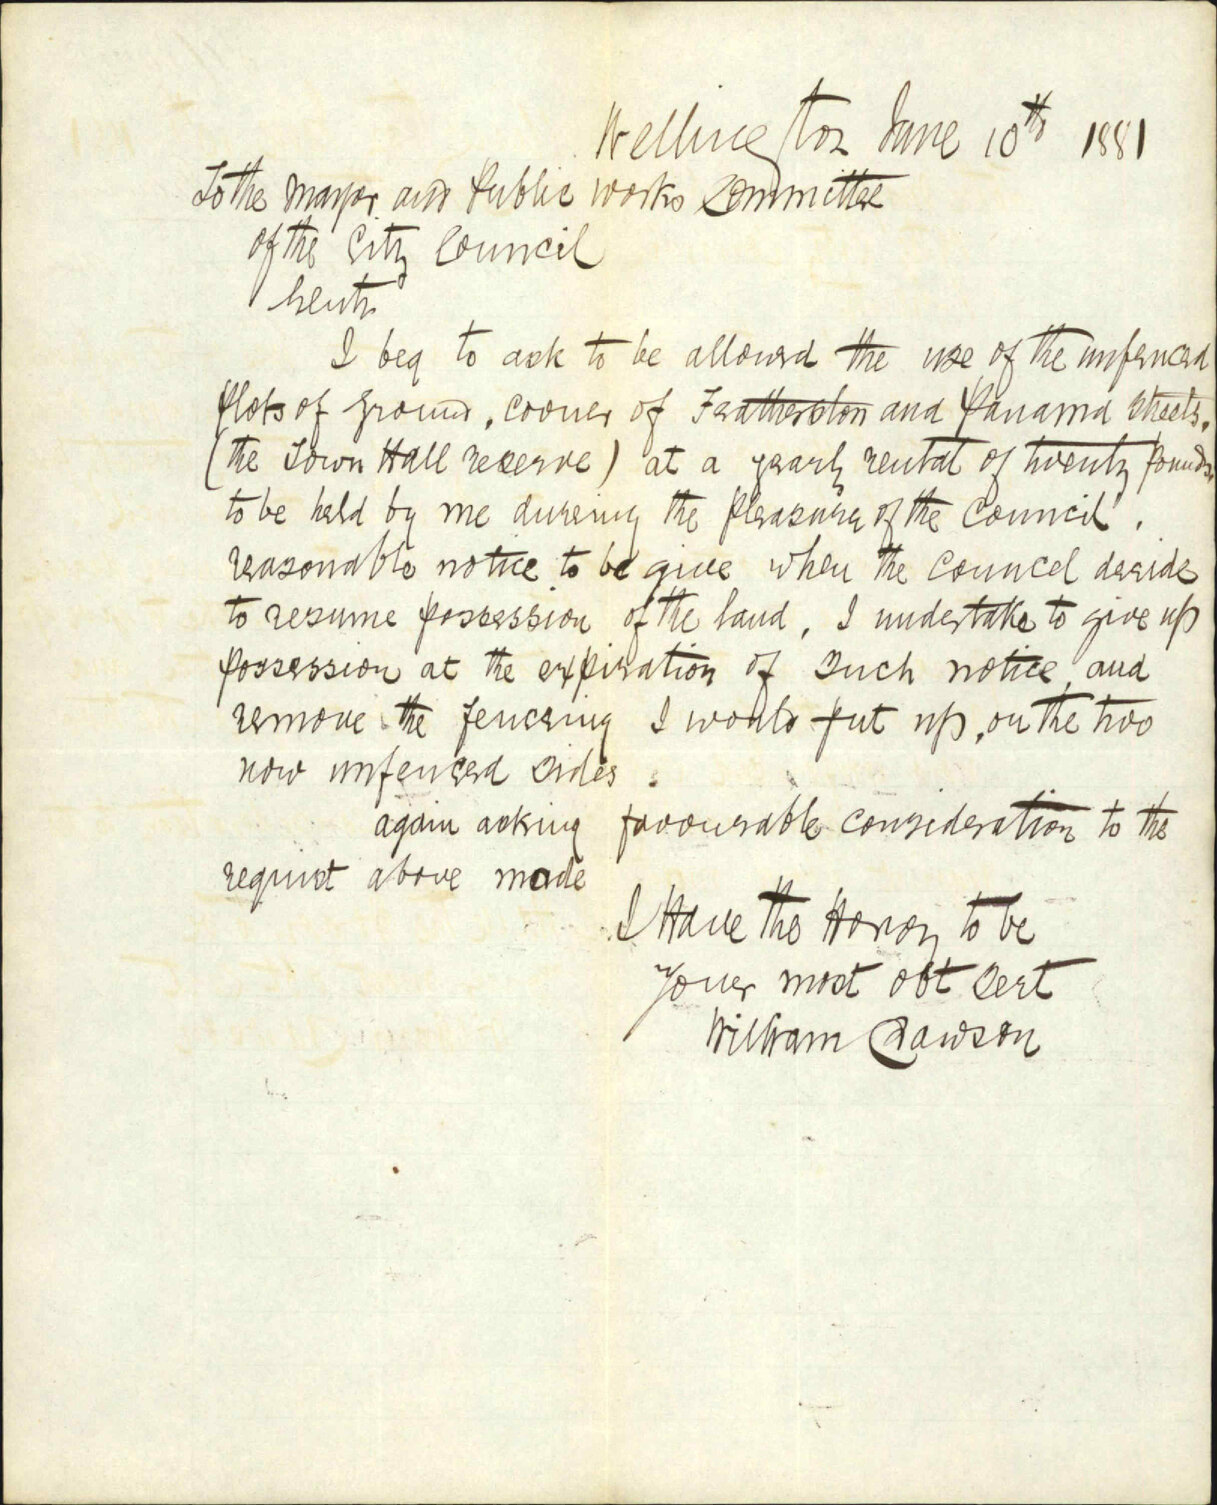 Wellington June 10th 1881
To the Mayor and Public works Committee
of the City Council
Gents
I beg to ask to be allowed the use of the unfenced
plots of ground, corner of Featherston and Panama Streets.
(the Town Hall reserve) at a yearly rental of twenty pounds.
to be held by me during the pleasure of the Council.
reasonable notice to be give when the Council decide
to resume possession of the land, I undertake to give up
possession at the expiration of such notice, and
remove the fencing I would put up, on the two
now unfenced sides.
again asking favourable consideration to the
request above made
I Have the Honor to be
Your most obt Sert
William Dawson